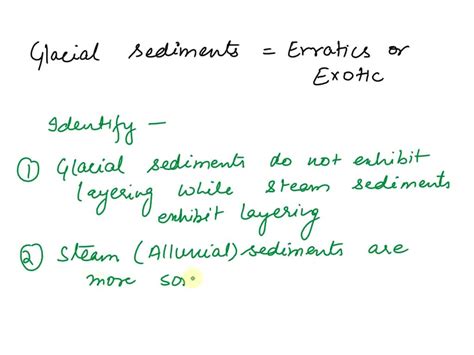 Glacial sediments = Erratics or
Exotic
Identify —
① Glacial sediments do not exhibit
layering while steam sediments
exhibit layering
② Steam (Alluvial) sediments are
more sor